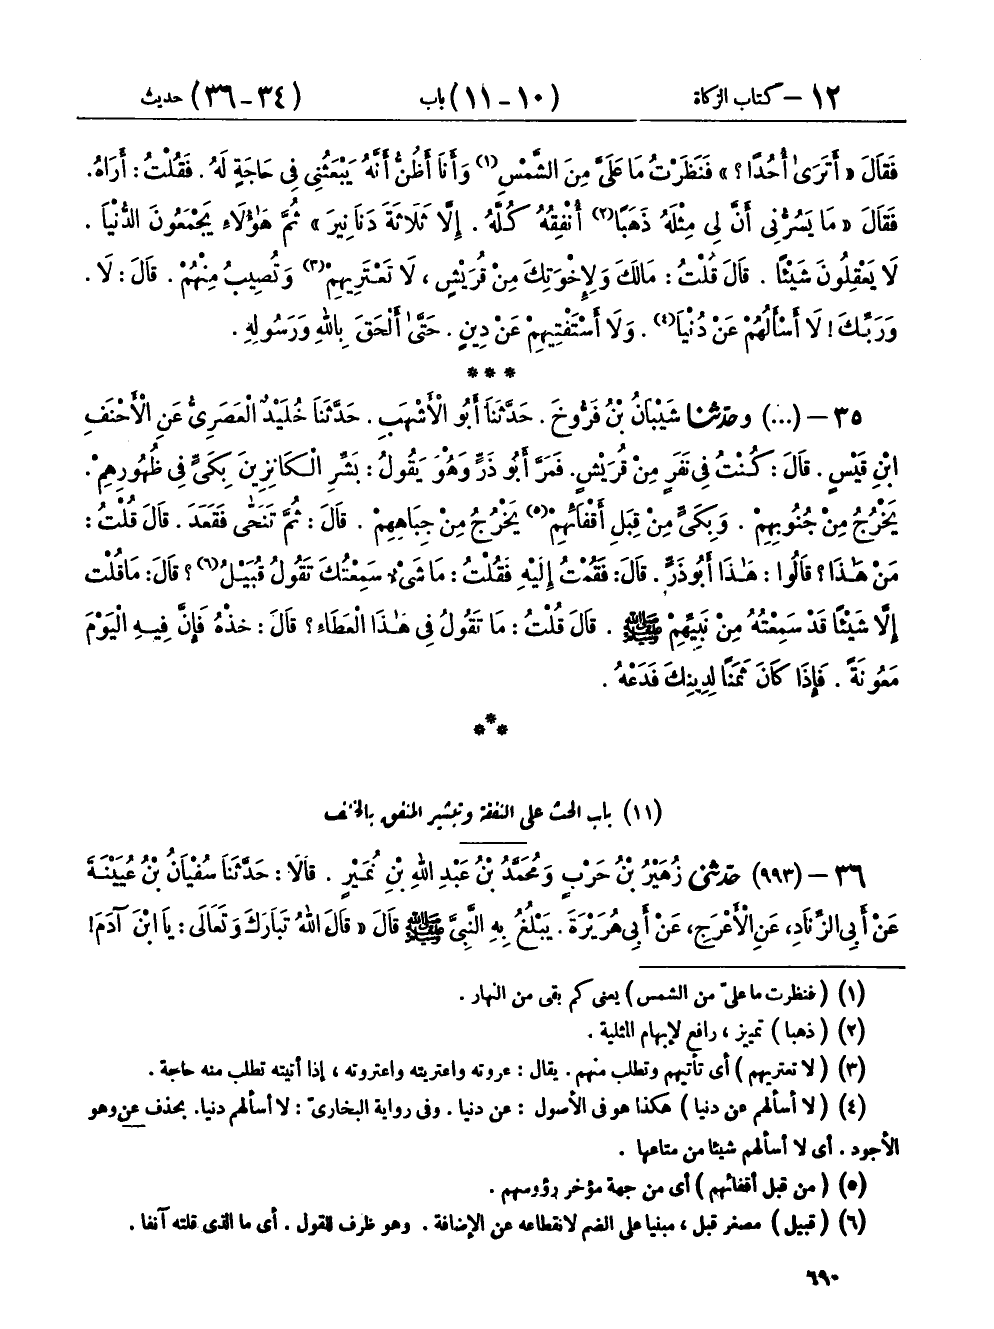 ١٢ – كتاب الزكاة (١٠ – ١١) باب (٣٤ – ٣٦) حديث
فَقَالَ « أَتَرَىٰ أُحُدًا ؟ » فَنَظَرْتُ مَا عَلَىَّ مِنَ الشَّمْسِ(١) وَأَنَا أَظُنُّ أَنَّهُ يَبْعَثُنِى فِى حَاجَةٍ لَهُ . فَقُلْتُ : أَرَاهُ .
فَقَالَ « مَا يَسُرُّنِى أَنَّ لِى مِثْلَهُ ذَهَبًا(٢) أُنْفِقُهُ كُلَّهُ . إِلَّا ثَلَاثَةَ دَنَانِيرَ » ثُمَّ هَٰؤُلَاءِ يَجْمَعُونَ الدُّنْيَا .
لَا يَعْقِلُونَ شَيْئًا . قَالَ قُلْتُ : مَالَكَ وَلِإِخْوَتِكَ مِنْ قُرَيْشٍ ، لَا تَعْتَرِيهِمْ(٣) وَتُصِيبُ مِنْهُمْ . قَالَ : لَا .
وَرَبِّكَ ! لَا أَسْأَلُهُمْ عَنْ دُنْيَا(٤) . وَلَا أَسْتَفْتِيهِمْ عَنْ دِينٍ . حَتَّىٰ أَلْحَقَ بِاللهِ وَرَسُولِهِ .
***
٣٥ – (...) وحَدَّثَنَا شَيْبَانُ بْنُ فَرُّوخَ . حَدَّثَنَا أَبُو الْأَشْهَبِ . حَدَّثَنَا خُلَيْدٌ الْعَصَرِىُّ عَنِ الْأَحْنَفِ
ابْنِ قَيْسٍ . قَالَ : كُنْتُ فِى نَفَرٍ مِنْ قُرَيْشٍ . فَمَرَّ أَبُو ذَرٍّ وَهُوَ يَقُولُ : بَشِّرِ الْكَانِزِينَ بِكَىٍّ فِى ظُهُورِهِمْ .
يَخْرُجُ مِنْ جُنُوبِهِمْ . وَبِكَىٍّ مِنْ قِبَلِ أَقْفَائِهِمْ(٥) يَخْرُجُ مِنْ جِبَاهِهِمْ . قَالَ : ثُمَّ تَنَحَّى فَقَعَدَ . قَالَ قُلْتُ :
مَنْ هَٰذَا ؟ قَالُوا : هَٰذَا أَبُو ذَرٍّ . قَالَ : فَقُمْتُ إِلَيْهِ فَقُلْتُ : مَا شَىْءٌ سَمِعْتُكَ تَقُولُ قُبَيْلُ(٦) ؟ قَالَ : مَا قُلْتُ
إِلَّا شَيْئًا قَدْ سَمِعْتُهُ مِنْ نَبِيِّهِمْ ﷺ . قَالَ قُلْتُ : مَا تَقُولُ فِى هَٰذَا الْعَطَاءِ ؟ قَالَ : خُذْهُ فَإِنَّ فِيهِ الْيَوْمَ
مَعُونَةً . فَإِذَا كَانَ ثَمَنًا لِدِينِكَ فَدَعْهُ .
***
(١١) باب الحث على النفقة وتبشير المنفق بالخلف
٣٦ – (٩٩٣) حَدَّثَنِى زُهَيْرُ بْنُ حَرْبٍ وَمُحَمَّدُ بْنُ عَبْدِ اللهِ بْنِ نُمَيْرٍ . قَالَا : حَدَّثَنَا سُفْيَانُ بْنُ عُيَيْنَةَ
عَنْ أَبِى الزِّنَادِ ، عَنِ الْأَعْرَجِ ، عَنْ أَبِى هُرَيْرَةَ . يَبْلُغُ بِهِ النَّبِىَّ ﷺ قَالَ « قَالَ اللهُ تَبَارَكَ وَتَعَالَى : يَا ابْنَ آدَمَ !
(١) ( فنظرت ما علىّ من الشمس ) يعنى كم بقى من النهار .
(٢) ( ذهبا ) تمييز ، رافع لإبهام المثلية .
(٣) ( لا تعتريهم ) أى تأتيهم وتطلب منهم . يقال : عروته واعتريته واعتروته ، إذا أتيته تطلب منه حاجة .
(٤) ( لا أسألهم عن دنيا ) هكذا هو فى الأصول : عن دنيا . وفى رواية البخارىّ : لا أسألهم دنيا . بحذف عن وهو
الأجود . أى لا أسألهم شيئا من متاعها .
(٥) ( من قبل أقفائهم ) أى من جهة مؤخر رؤوسهم .
(٦) ( قبيل ) مصغر قبل ، مبنيا على الضم لانقطاعه عن الإضافة . وهو ظرف للقول . أى ما الذى قلته آنفا .
٦٩٠